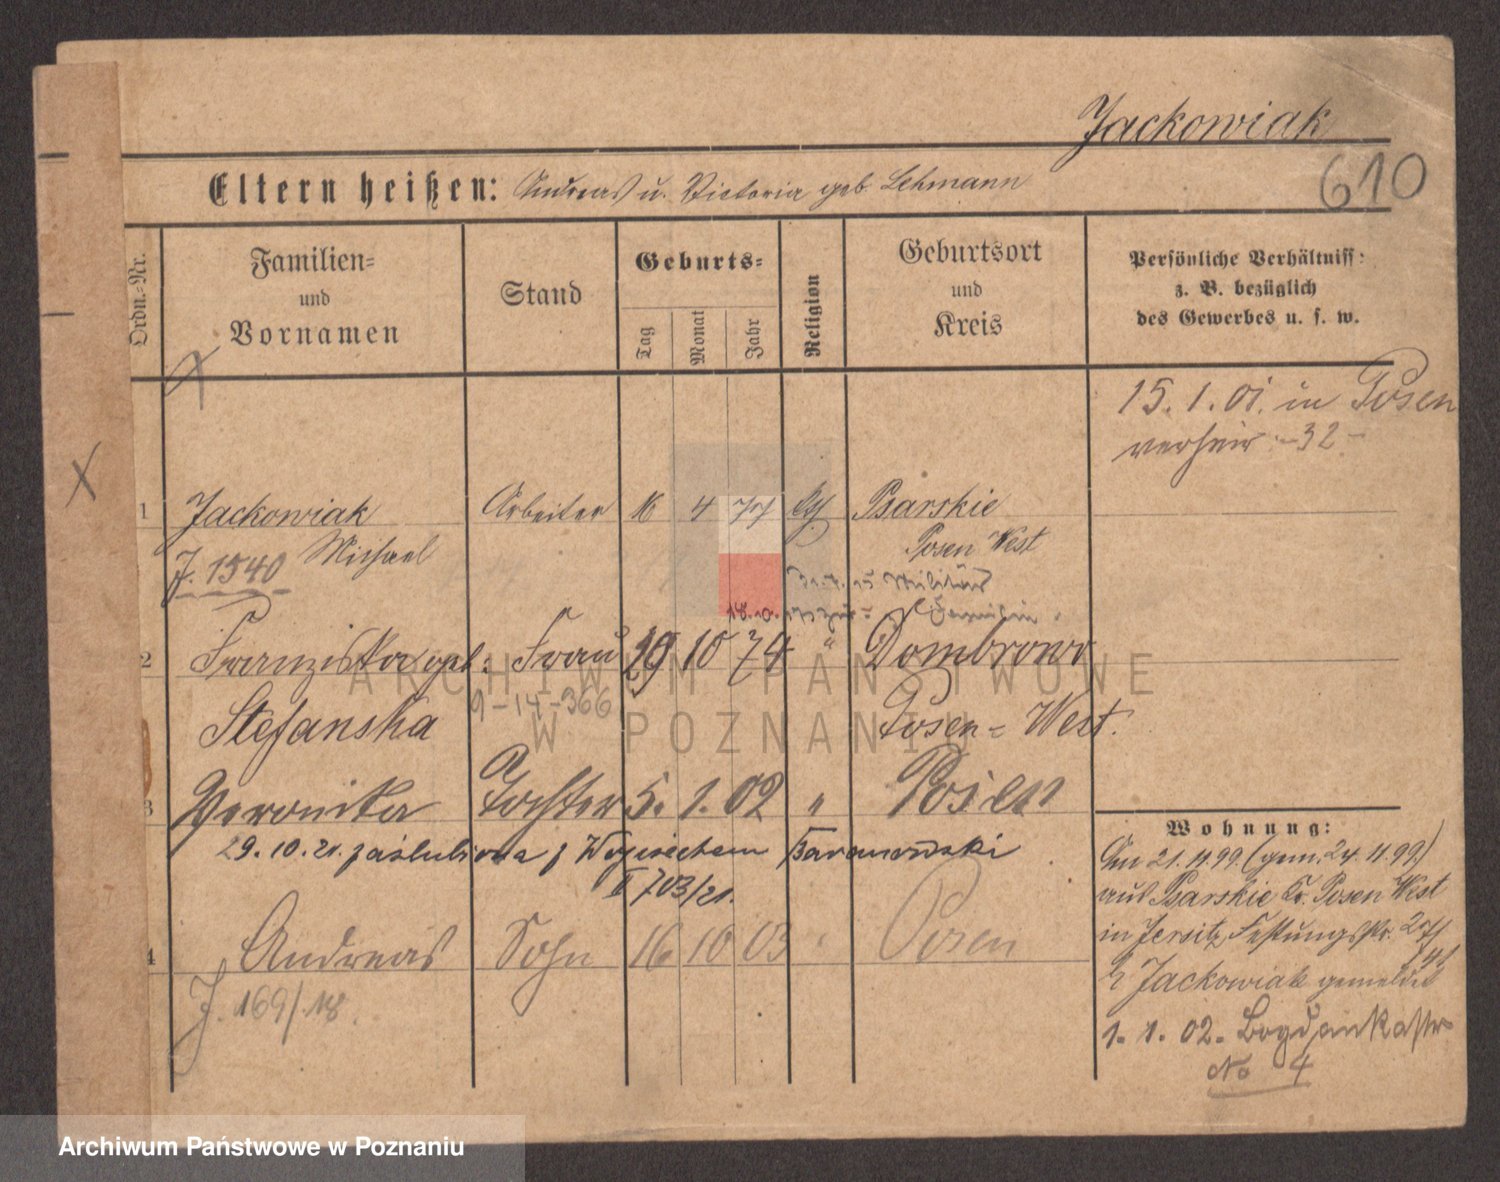 Jackowiak
610
Eltern heißen: Andreas u. Victoria geb. Lehmann
Ordn.-Nr.
Familien=
und
Vornamen
Stand
Geburts=
Tag
Monat
Jahr
Religion
Geburtsort
und
Kreis
Persönliche Verhältniss:
z. B. bezüglich
des Gewerbes u. s. w.
15. 1. 01. in Posen
verheir. -32-
1 Jackowiak Arbeiter 16 4 77 Psarskie
Michael Posen West
J. 1540
Militär
2 Franziska geb: Frau 29 10 74 " Dombrowo
9-14-366
Stefanska Posen=West.
3 Veronika Tochter 5. 1. 02 " Posen
29.10.21. zaślubiona z Wojciechem Baranowski
II 703/21.
4 Andreas Sohn 16 10 03 Posen
J. 169/18.
Wohnung:
Am 21.11.99. (gem. 24.11.99)
aus Psarskie Kr. Posen West
in Jersitz Festungsstr.
Jackowiak gemeldet
1. 1. 02. Bogdankastr
No 4
ARCHIWUM PAŃSTWOWE
W POZNANIU
Archiwum Państwowe w Poznaniu